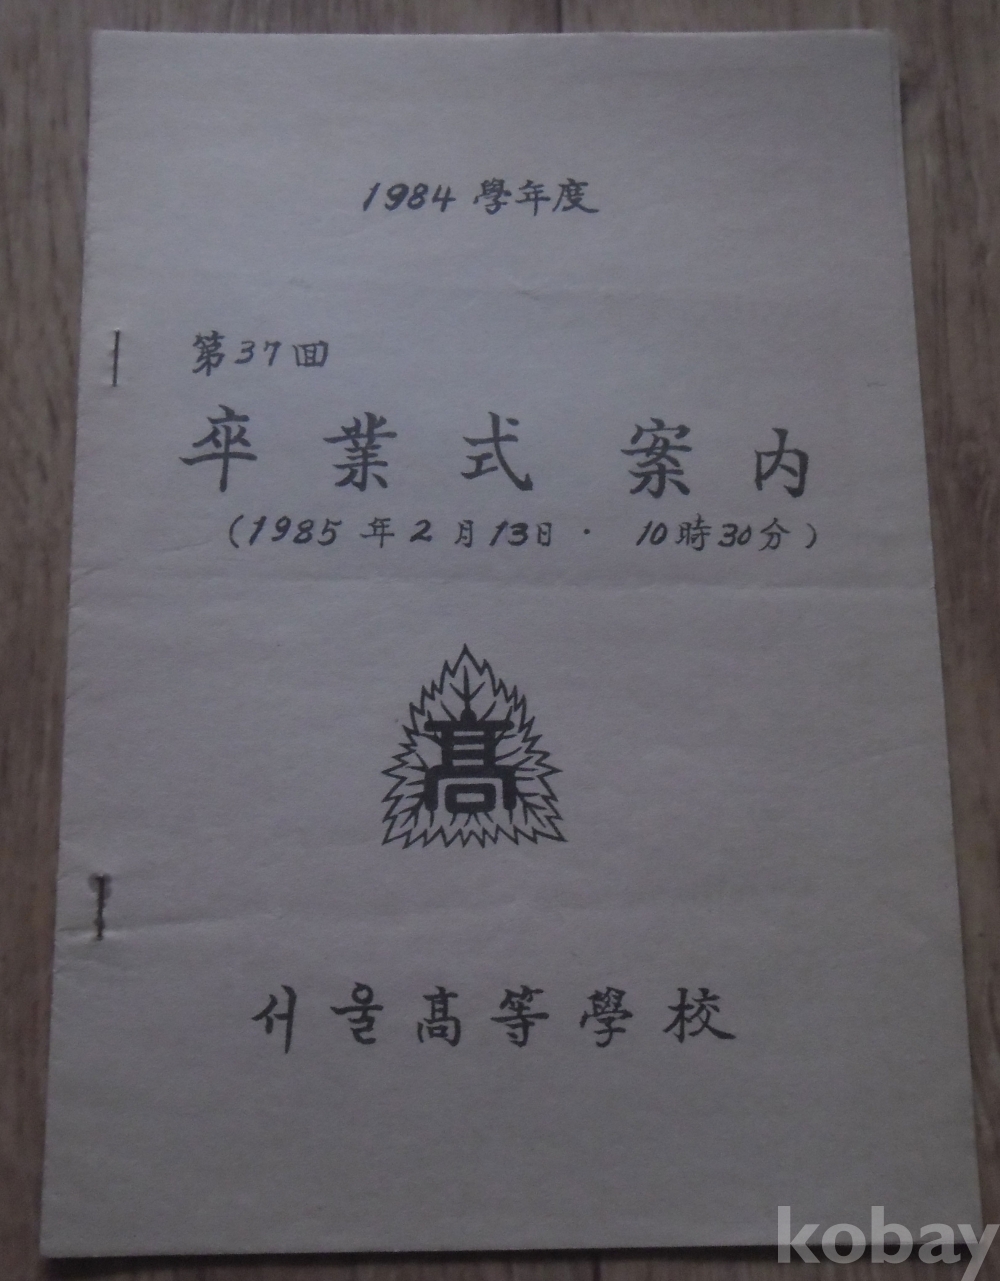 1984 學年度
第37回
卒業式 案内
(1985年2月13日 · 10時30分)
髙
서울髙等學校
kobay